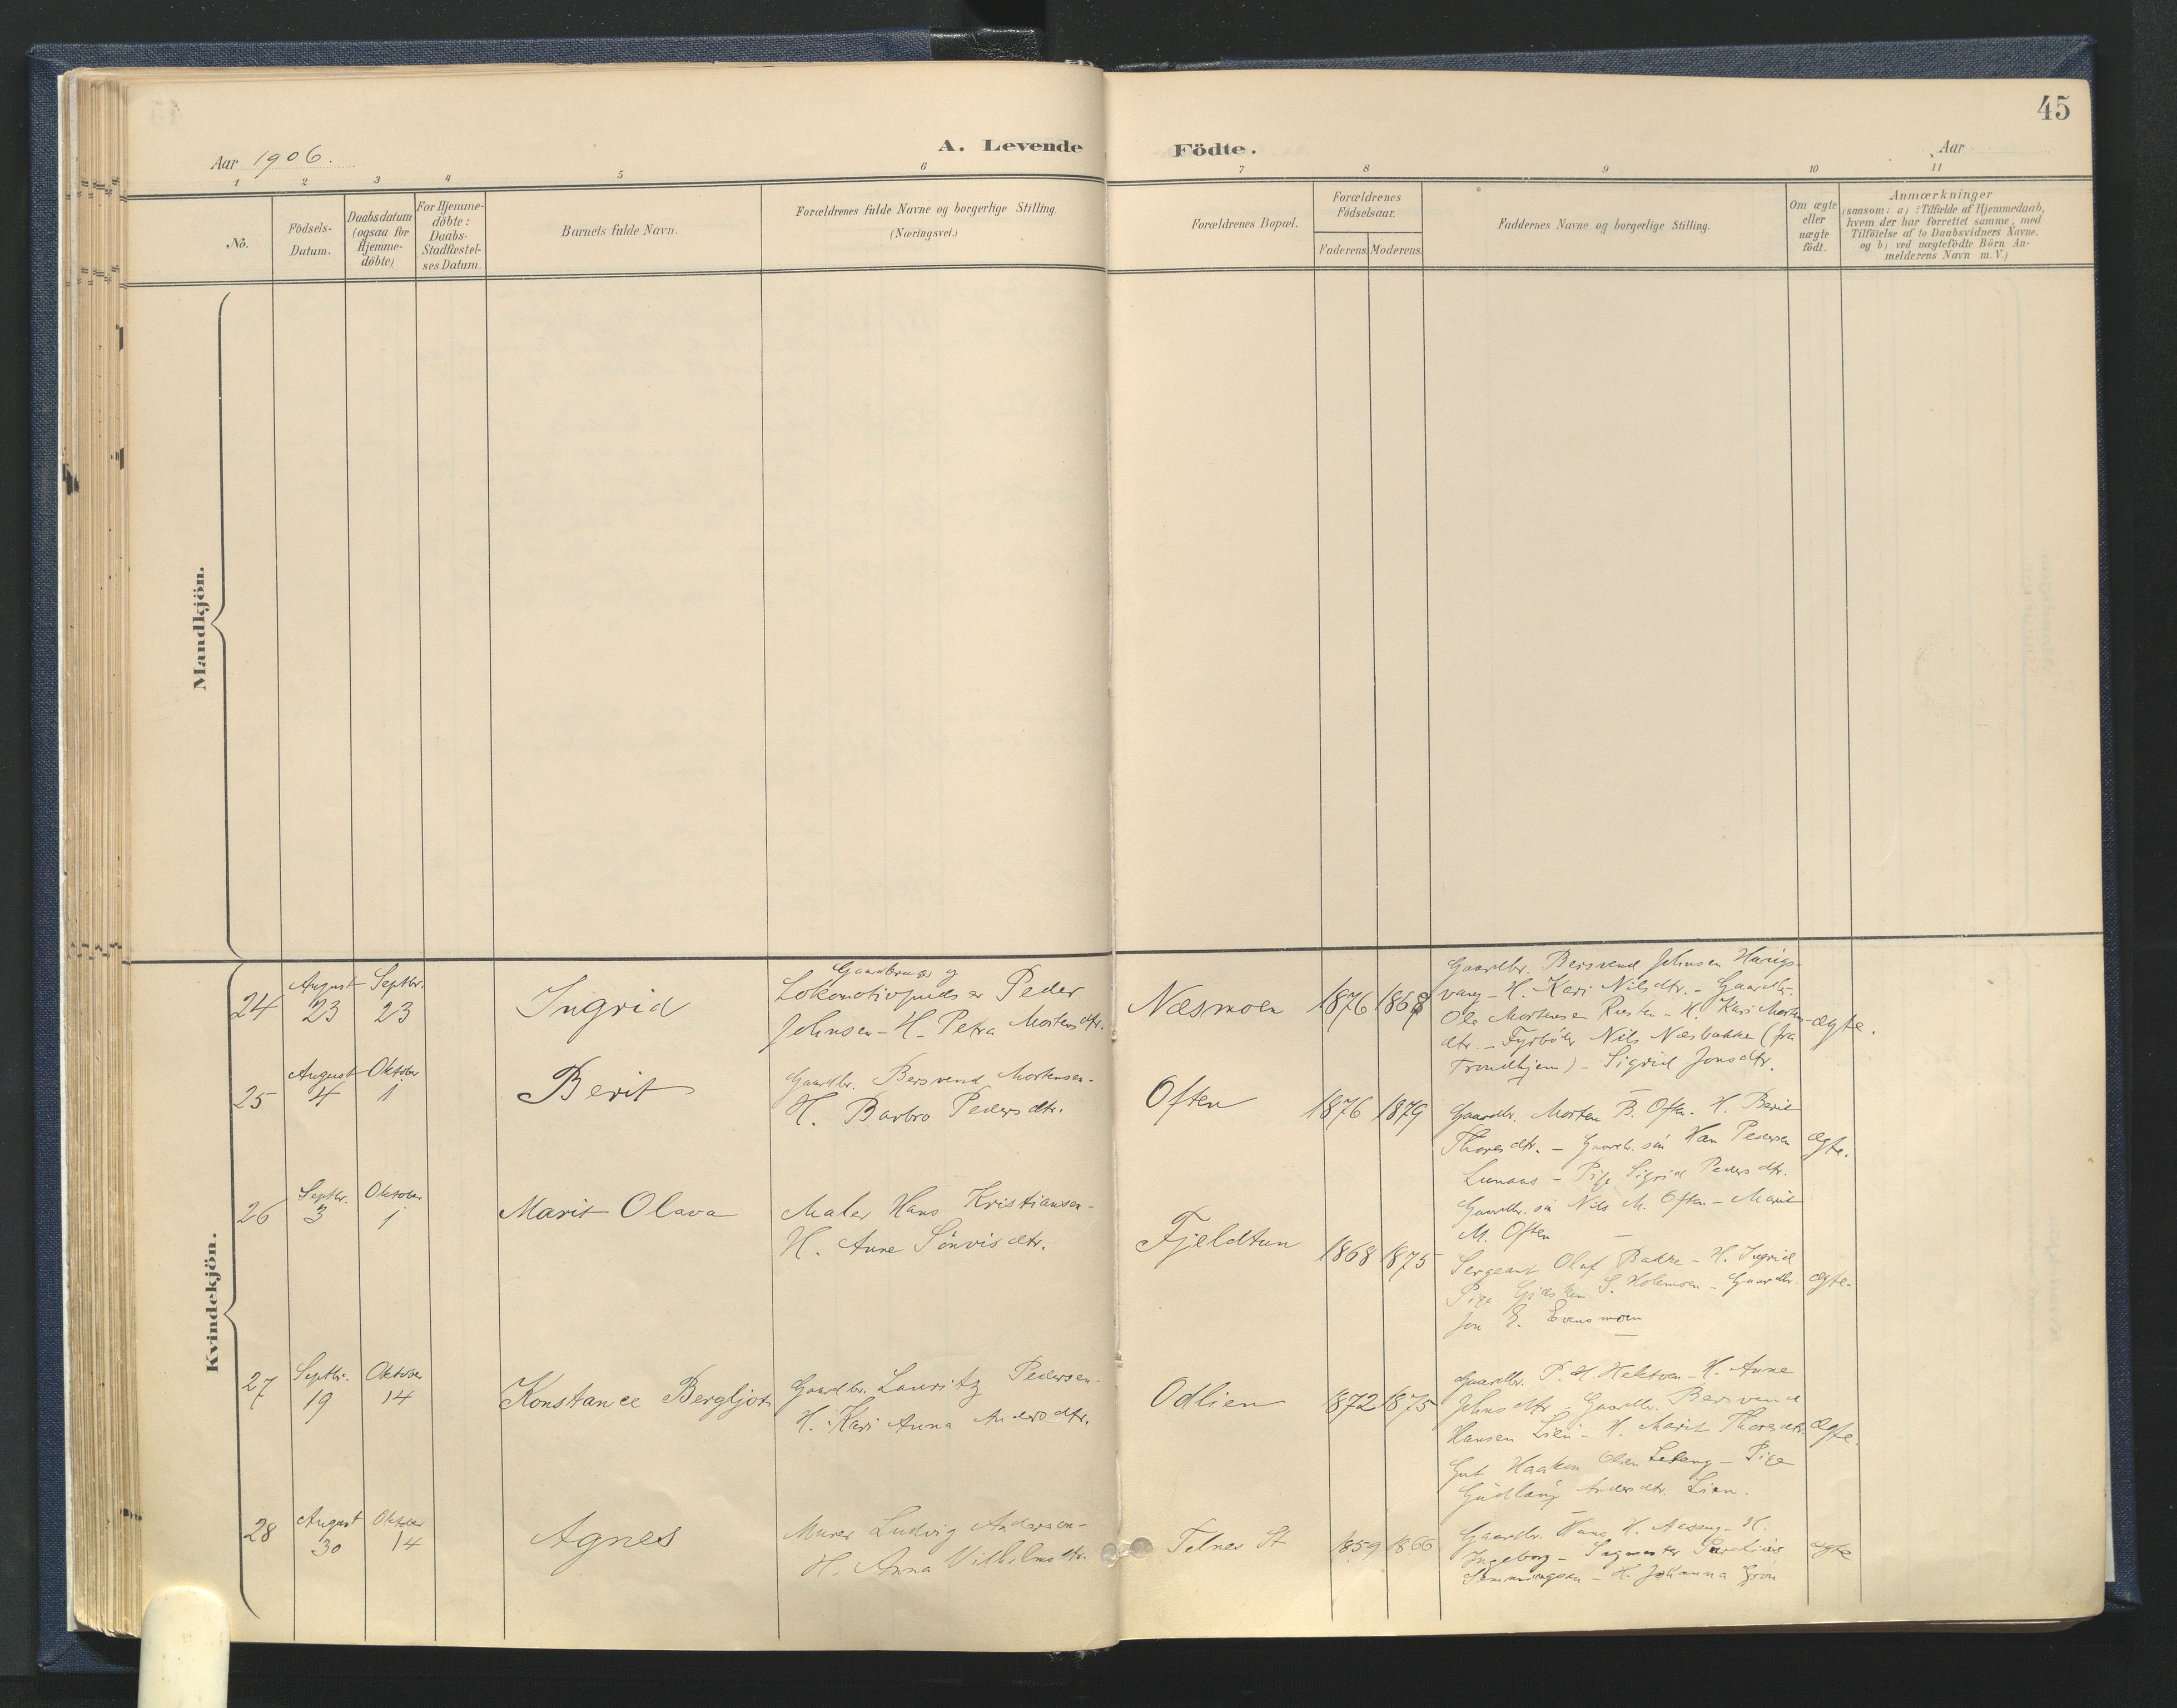 45
Aar 1906.
A. Levende Födte.
Aar
1 2 3 4 5 6 7 8 9 10 11
No.
Födsels-
Datum.
Daabsdatum
(ogsaa for
Hjemme-
döbte)
For Hjemme-
döbte:
Daabs-
Stadfestel-
ses Datum.
Barnets fulde Navn.
Forældrenes fulde Navne og borgerlige Stilling.
(Næringsvei.)
Forældrenes Bopæl.
Forældrenes
Födselsaar.
Faderens Moderens
Faddernes Navne og borgerlige Stilling.
Om ægte
eller
uægte
födt.
Anmærkninger
(saasom: a) i Tilfælde af Hjemmedaab,
hvem der har forrettet samme, med
Tilföielse af to Daabsvidners Navne.
og b) ved uægtefödte Börn An-
melderens Navn m.V.)
Mandkjön.
Kvindekjön.
24
August
23
Septbr.
23
Ingrid
Gaardbruger og
Lokomotivpudser Peder
Johnsen - H. Petra Mortensdtr.
Næsmoen
1876 1868
Gaardbr. Bersvend Johnsen
vang - H. Kari Nilsdtr. - Gaardbr.
Ole Mortensen Rusten - H. Kari Morten-
dtr. - Fyrböder Nils Næsbakke (fra
Trondhjem) - Sigrid Jonsdtr.
ægte.
25
August
4
Oktober
1
Berit
Gaardbr. Bersvend Mortensen -
H. Barbro Pedersdtr.
Often
1876 1879
Gaardbr. Morten B. Often. H. Berit
Thoresdtr. - Gaardb. sön Han Pedersen
Lunaas - Pige Sigrid Pedersdtr.
Gaardbr. sön Nils M. Often - Marit
M. Often
ægte.
26
Septbr.
3
Oktober
1
Marit Olava
Maler Hans Kristiansen -
H. Anne Sönvisdtr.
Fjeldtun
1868 1875
Sergeant Olaf Bakke - H. Ingrid
Pige S. Holemoen - Gaardbr.
Jon E. Evensmoen
ægte.
27
Septbr.
19
Oktober
14
Konstance Bergljot
Gaardbr. Lauritz Pedersen -
H. Kari Anna Andersdtr.
Odlien
1872 1875
Gaardbr. P. H. Hektoen - H. Anne
Johnsdtr - Gaardbr. Bersvend
Hansen Lien - H. Marit Thoresdtr.
Gut Haakon Olsen - Pige
Gudlaug Andersdtr. Lien.
ægte.
28
August
30
Oktober
14
Agnes
Murer Ludvig Andersen -
H. Anna Vilhelmsdtr.
Telnes St
1859 1866
Gaardbr. Hans H. Aaseng - H.
Ingeborg - Sagmester
Semmingsen - H. Johanna
ægte